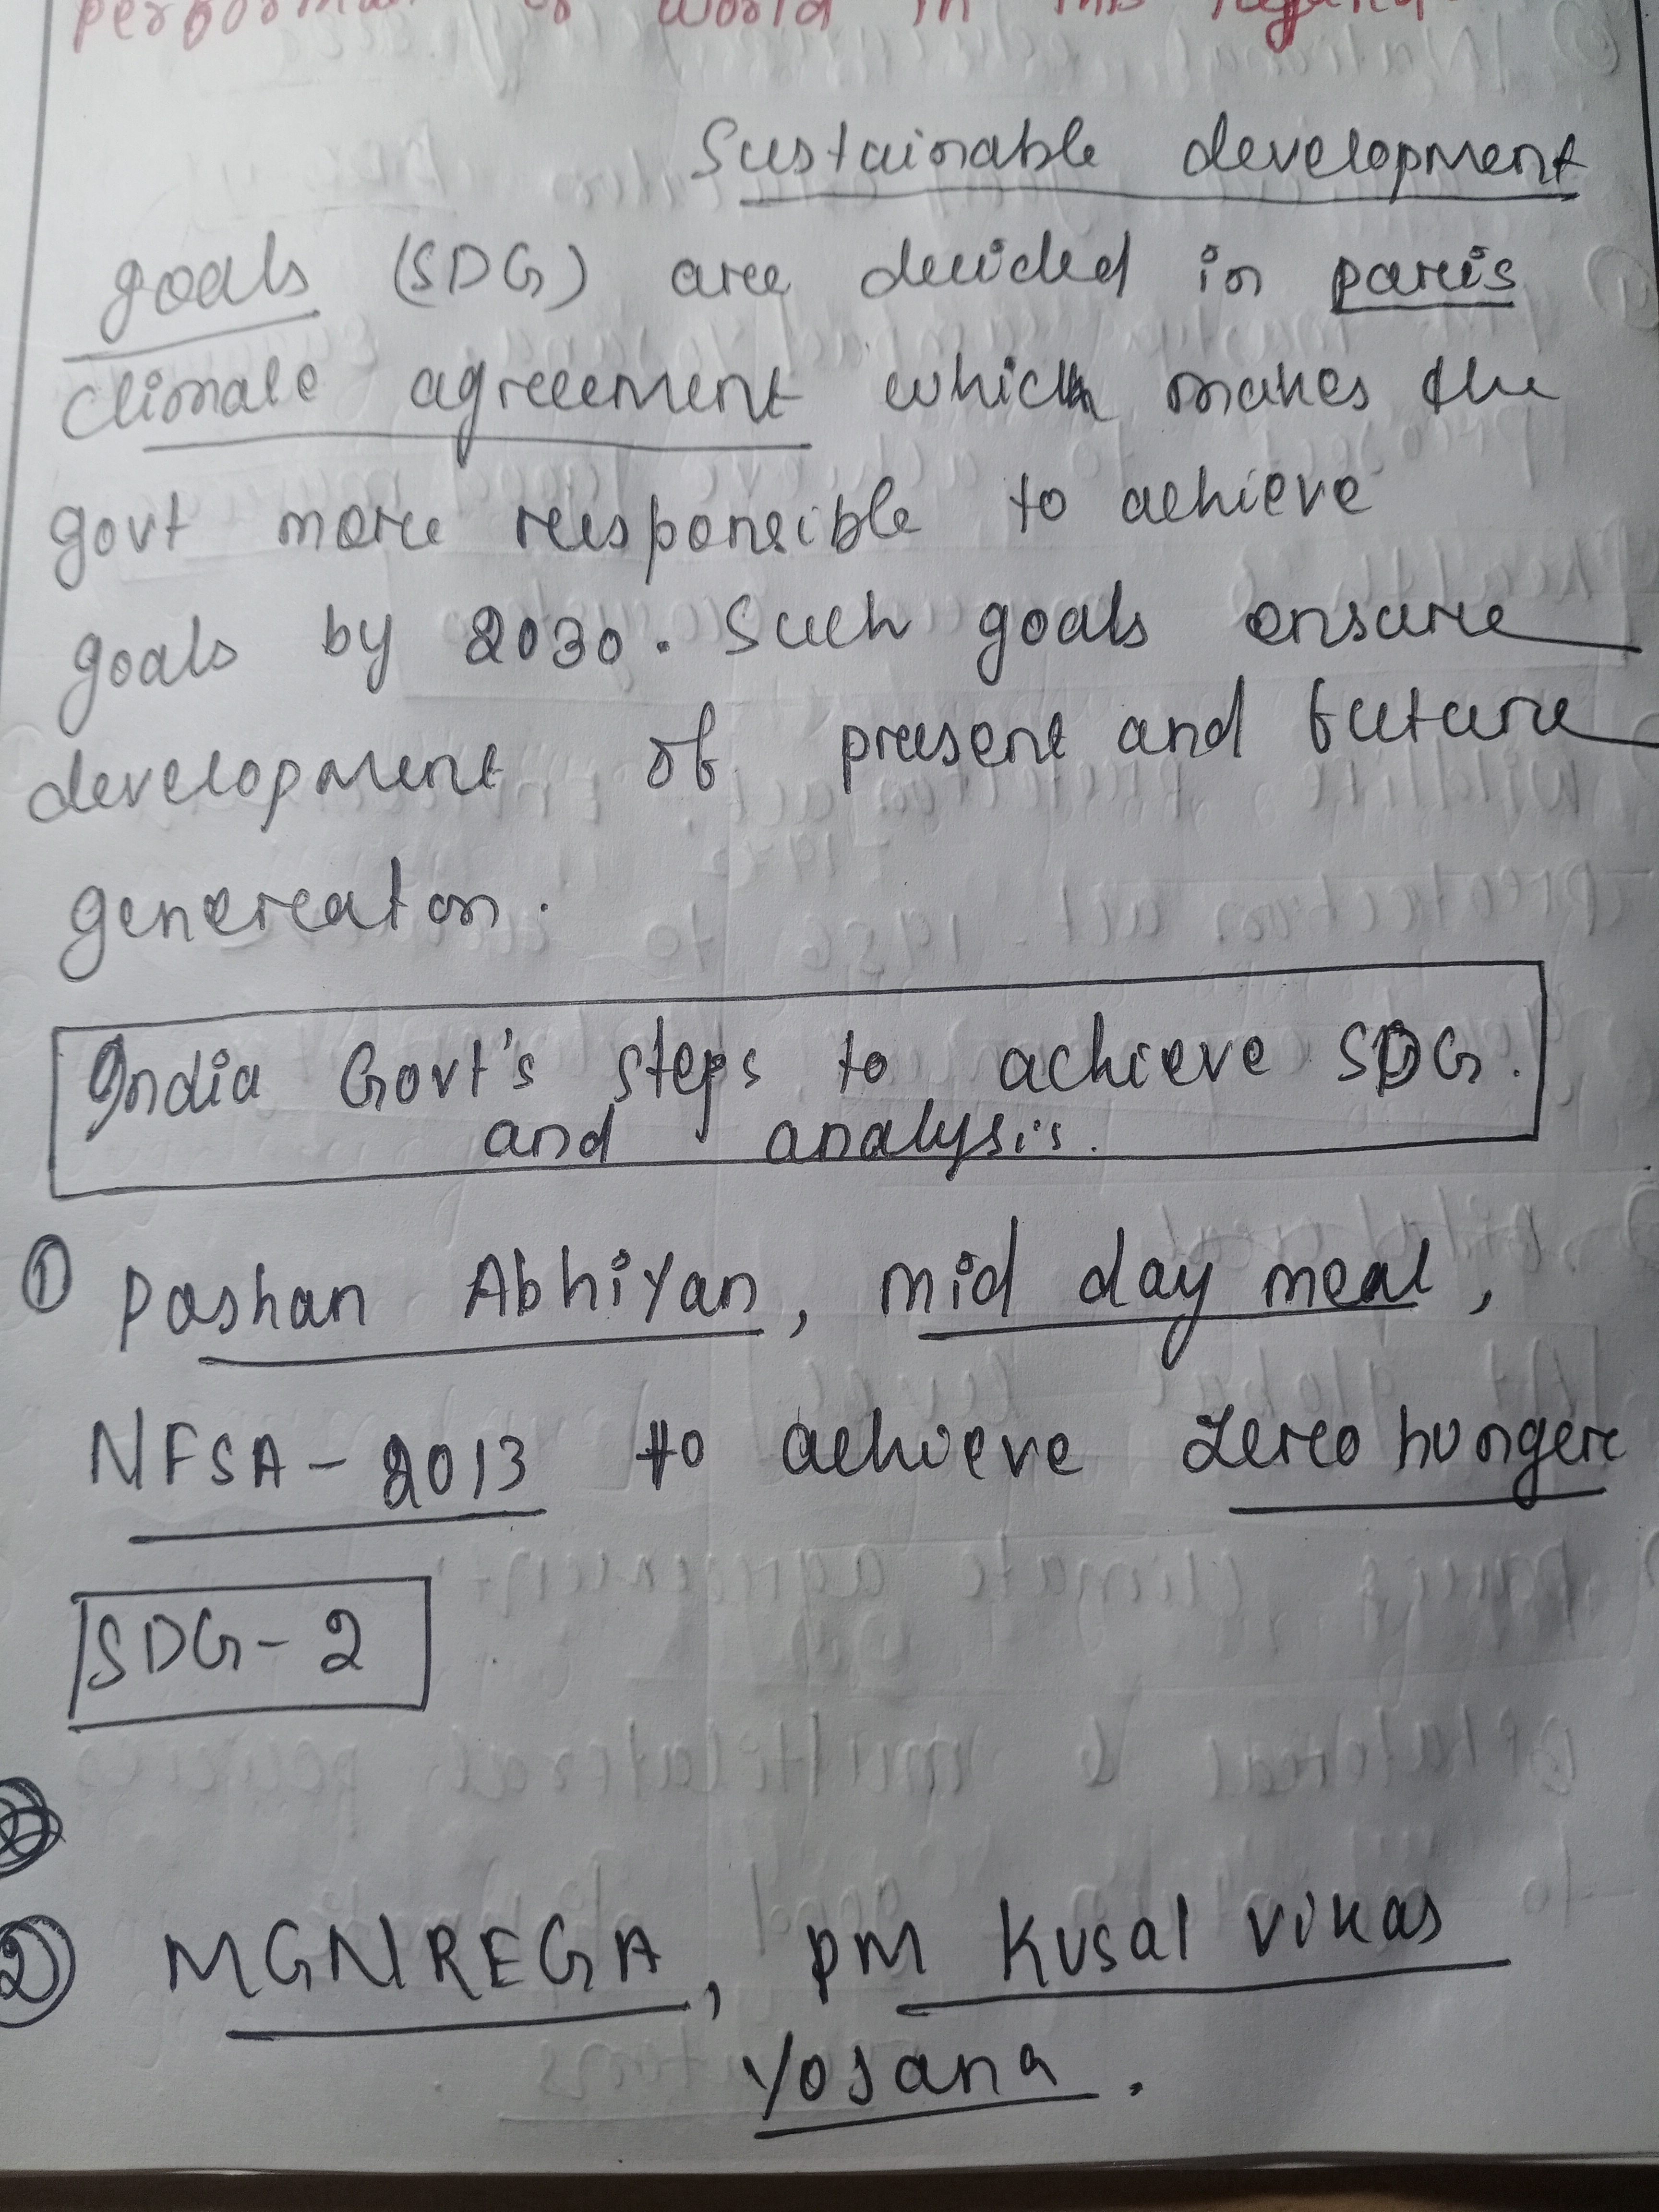 world in this regard.
Sustainable development
goals (SDG) are decided in paris
climate agreement which makes the
govt more responsible to achieve
goals by 2030. Such goals ensure
development of present and future
generaton.
India Govt's steps to achieve SDG.
and analysis.
① Poshan Abhiyan, mid day meal,
NFSA-2013 to achieve zero hunger
SDG-2
② MGNREGA, PM Kusal Vikas
Yojana.